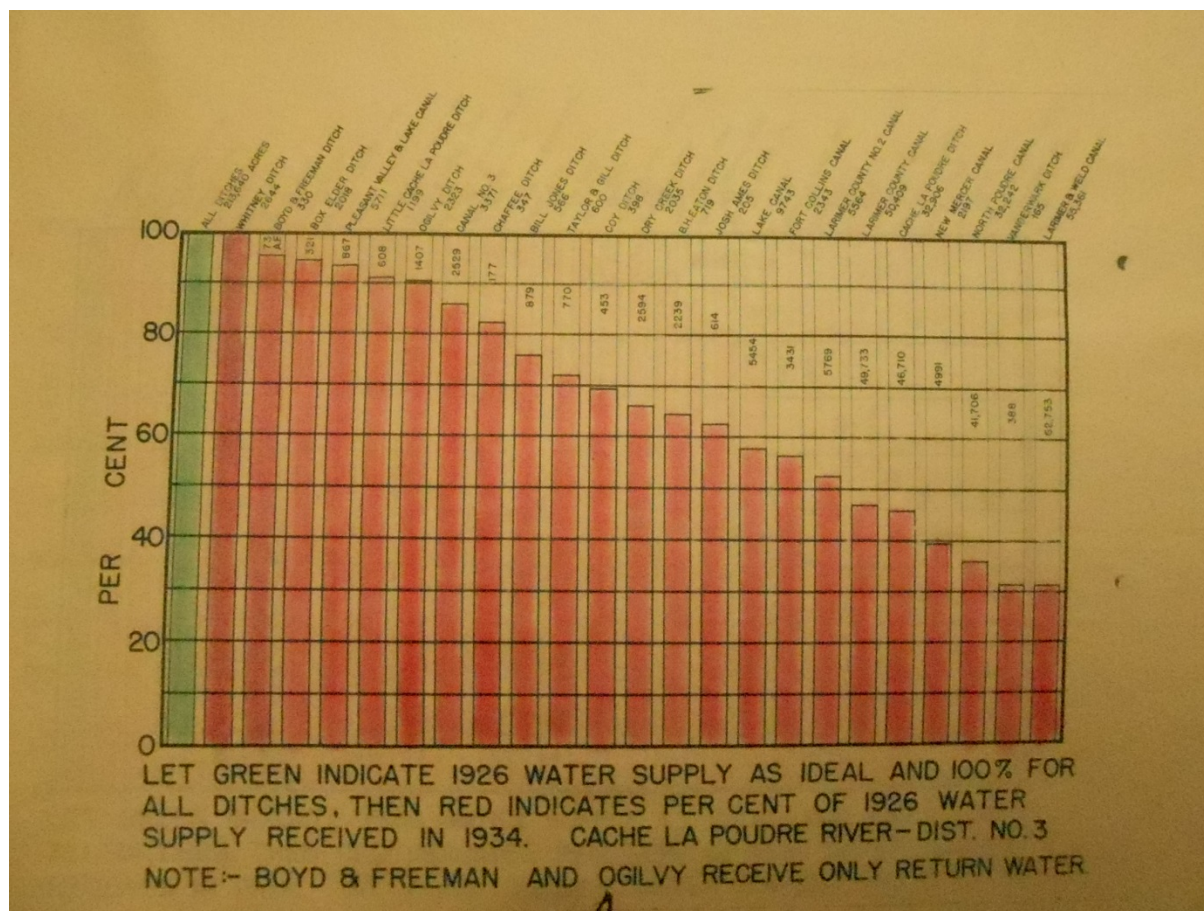 ALL DITCHES
213,640 ACRES
WHITNEY DITCH
2644
BOYD & FREEMAN DITCH
330
BOX ELDER DITCH
2098
PLEASANT VALLEY & LAKE CANAL
5711
LITTLE CACHE LA POUDRE DITCH
1199
OGILVY DITCH
2323
CANAL NO. 3
3371
CHAFFEE DITCH
347
BILL JONES DITCH
566
TAYLOR & GILL DITCH
600
COY DITCH
398
DRY CREEK DITCH
2035
B.H. EATON DITCH
719
JOSH AMES DITCH
205
LAKE CANAL
9743
FORT COLLINS CANAL
2343
LARIMER COUNTY NO. 2 CANAL
5564
LARIMER COUNTY CANAL
50,409
CACHE LA POUDRE DITCH
32,906
NEW MERCER CANAL
NORTH POUDRE CANAL
32,242
DITCH
165
LARIMER & WELD CANAL
73
AF
321
867
608
1407
2529
177
879
770
453
2594
2239
614
5454
3431
5769
49,733
46,710
4991
41,706
388
62,753
100
80
60
40
20
0
PER CENT
LET GREEN INDICATE 1926 WATER SUPPLY AS IDEAL AND 100% FOR
ALL DITCHES, THEN RED INDICATES PER CENT OF 1926 WATER
SUPPLY RECEIVED IN 1934. CACHE LA POUDRE RIVER-DIST. NO. 3
NOTE:- BOYD & FREEMAN AND OGILVY RECEIVE ONLY RETURN WATER